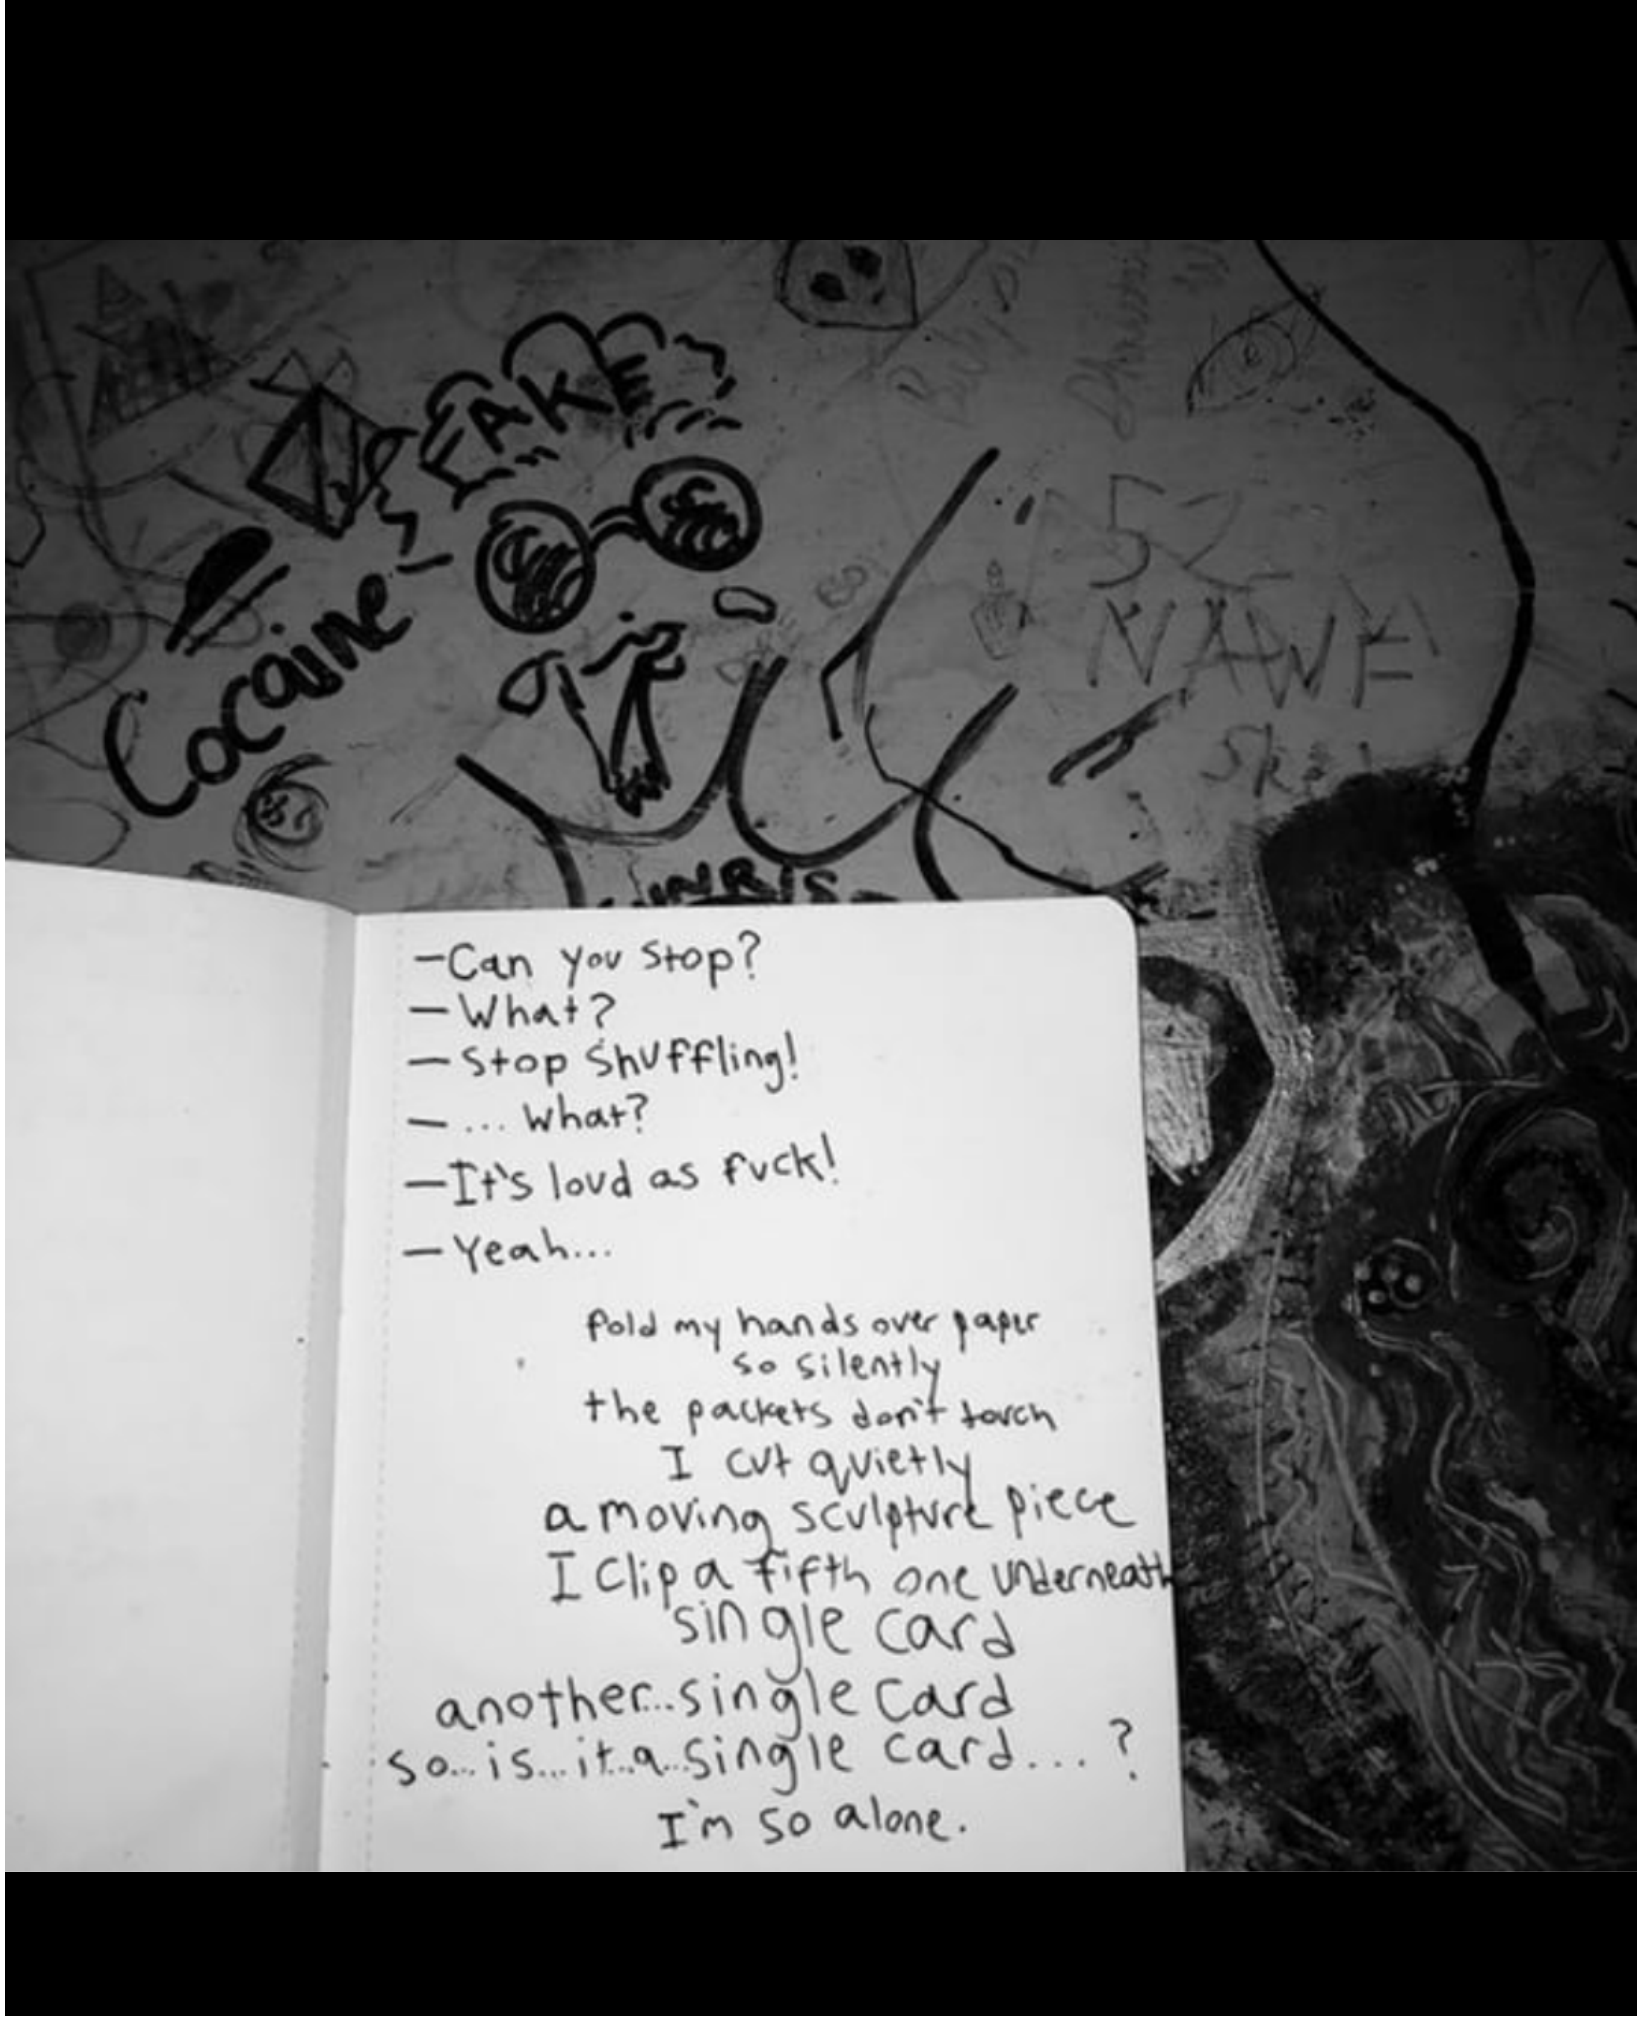 FAKE
Cocaine
52
NAWF
-Can you stop?
-What?
-Stop Shuffling!
-... What?
-It's loud as fuck!
-Yeah...
fold my hands over paper
so silently
the packets don't touch
I cut quietly
a moving sculpture piece
I clip a fifth one underneath
single card
another...single card
so...is...it...a...single card...?
I'm so alone.